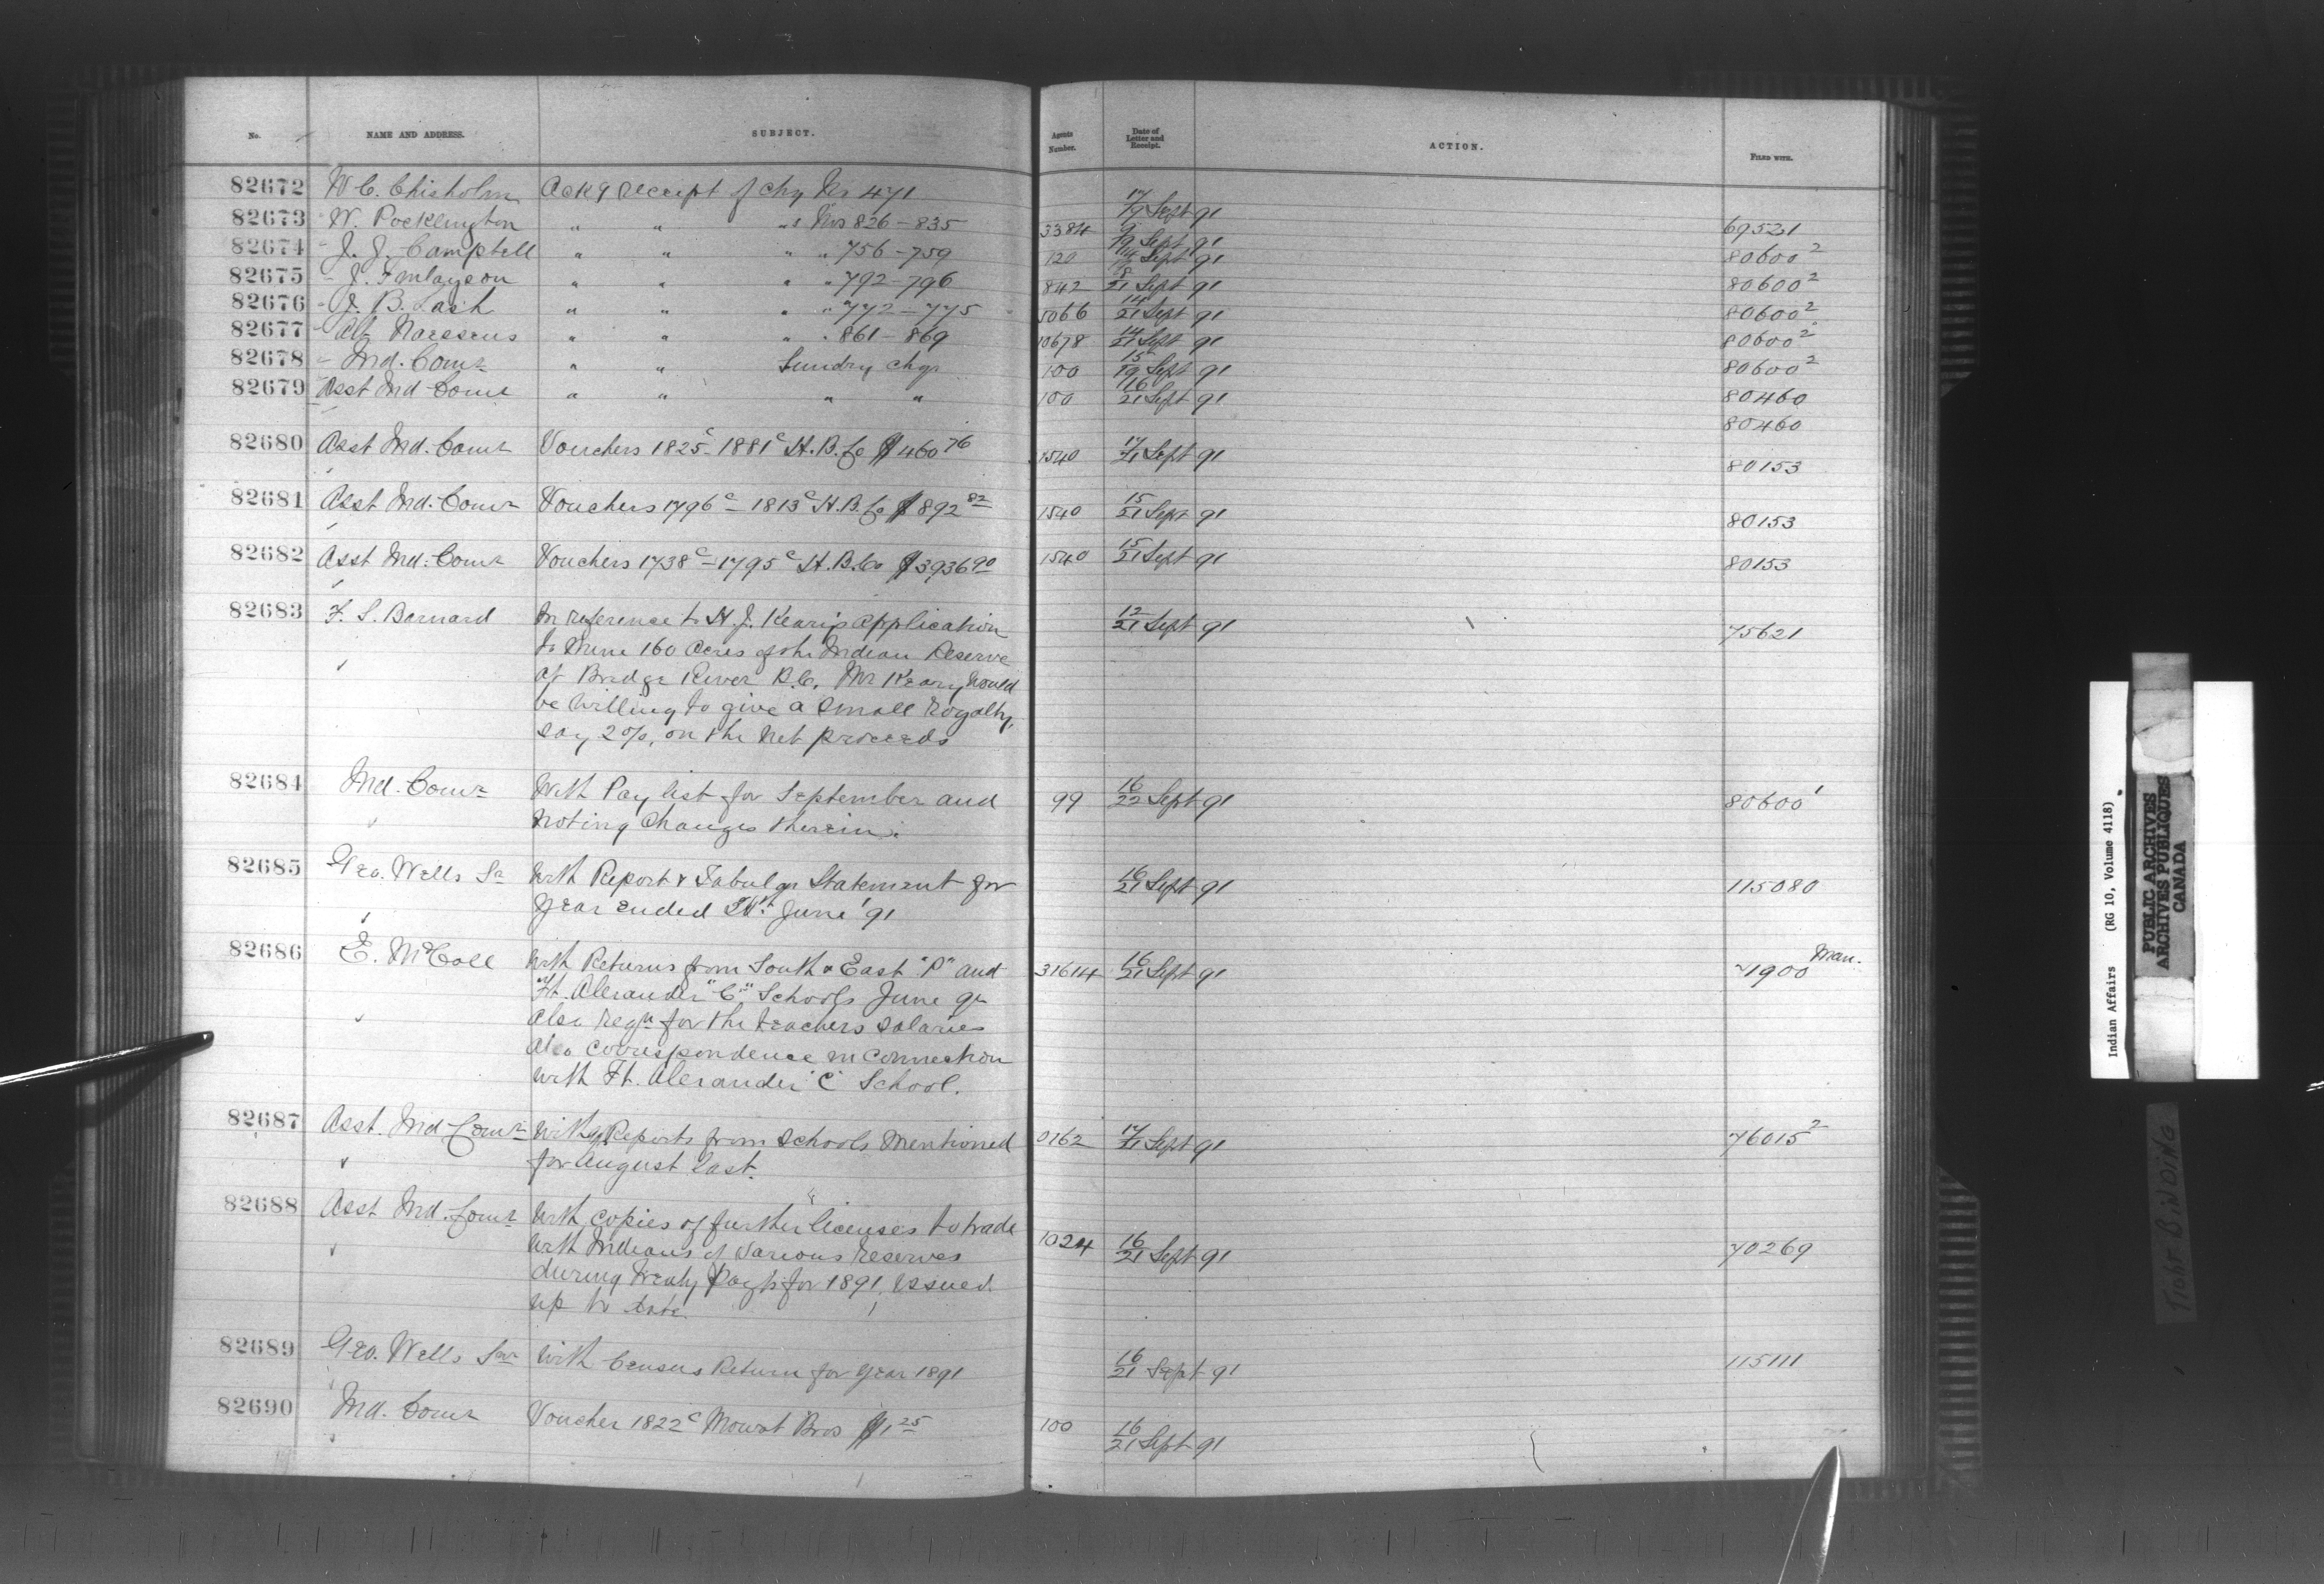 No. NAME AND ADDRESS. SUBJECT. Agents Number. Date of Letter and Receipt. ACTION. FILED WITH.
82672 W C. Chisholm Ackg receipt of chq No 471 17/19 Sept 91 69521
82673 W. Pocklington " " " s Nos 826-835 3384 9/19 Sept 91 80600²
82674 J. J. Campbell " " " " 756-759 120 14/19 Sept 91 80600²
82675 J. Finlayson " " " " 792-796 842 18/21 Sept 91 80600²
82676 J. B. Lash " " " " 772-775 5066 14/21 Sept 91 80600²
82677 " " " " 861-869 10678 14/21 Sept 91 80600²
82678 Ind. Comr " " Sundry chqs 100 15/19 Sept 91 80460
82679 Asst Ind Comr " " " " 100 16/21 Sept 91 80460
82680 Asst Ind. Comr Vouchers 1825c - 1881c H.B. Co $460 76 1540 17/21 Sept 91 80153
82681 Asst Ind. Comr Vouchers 1796c - 1813c H.B. Co $892 82 1540 15/21 Sept 91 80153
82682 Asst Ind. Comr Vouchers 1738c - 1795c H.B. Co $3936 90 1540 15/21 Sept 91 80153
82683 F. S. Barnard In reference to H. J. Keary's application 12/21 Sept 91 75621
to Mine 160 Acres of the Indian Reserve
at Bridge River B.C. Mr Keary would
be willing to give a small royalty,
say 2%, on the net proceeds
82684 Ind. Comr With Pay list for September and 99 16/22 Sept 91 80600¹
noting changes therein.
82685 Geo. Wells Sr With Report & Tabular Statement for 16/21 Sept 91 115080
year ended June '91
82686 E. McColl With Returns from South & East "P" and 31614 16/21 Sept 91 71900 Man.
Ft. Alexander "C" Schools June qr
Also reqn for the teachers salaries
also correspondence in connection
with Ft. Alexander "C" School.
82687 Asst. Ind Comr With Reports from Schools mentioned 0162 17/21 Sept 91 76015²
for August last.
82688 Asst Ind. Comr With copies of further licenses to trade 1024 16/21 Sept 91 70269
with Indians of various reserves
during treaty payts for 1891 issued
up to date.
82689 Geo. Wells Senr With Census Return for year 1891 16/21 Sept 91 115111
82690 Ind. Comr Voucher 1822c Mowat Bros $1 25 100 16/21 Sept 91
Indian Affairs (RG 10, Volume 4118)
PUBLIC ARCHIVES
ARCHIVES PUBLIQUES
CANADA
TIGHT BINDING